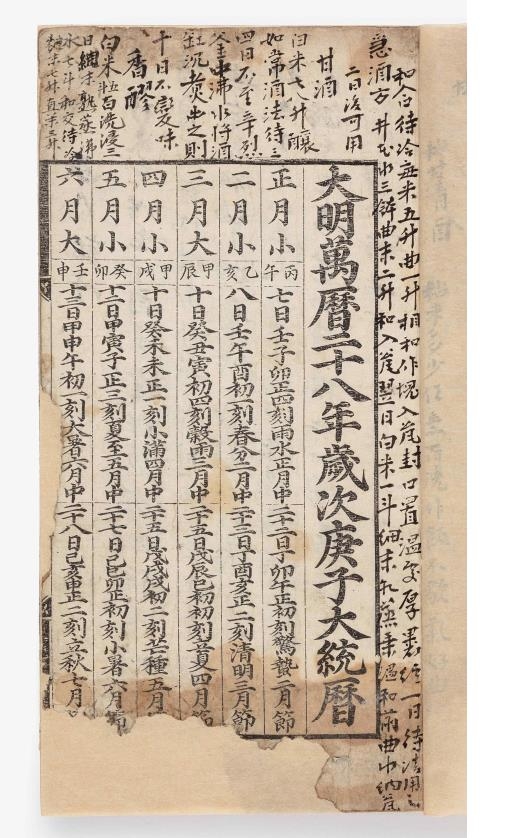 和合待冷每米五升曲一升相和作塊入瓮封口置溫處厚裹經一日待
急酒方 井花水三鉼曲末二升和入瓮翌日白米一斗細末蒸乘溫和前曲水納瓮
二日後可用
甘酒
白米七升釀
如常酒法待三
四日不至辛烈
釜中沸水將酒
缸沉煮出之則
十日不變味
香醪
白米一斗百洗浸三
日細末熟蒸沸
水七斗和交待冷
大明萬曆二十八年歲次庚子大統曆
正月小 丙午 七日壬子卯正四刻雨水正月中 二十二日丁卯午正初刻驚蟄二月節
二月小 乙亥 八日壬午酉初一刻春分二月中 二十三日丁酉亥正二刻清明三月節
三月大 甲辰 十日癸丑寅初四刻穀雨三月中 二十五日戊辰巳初刻首夏四月節
四月小 甲戌 十日癸未未正一刻小滿四月中 二十五日戊戌戌初二刻芒種五月
五月小 癸卯 十二日甲寅子正三刻夏至五月中 二十七日己巳卯正初刻小暑六月節
六月大 壬申 十三日甲申午初一刻大暑六月中 二十八日己亥申正二刻立秋七月